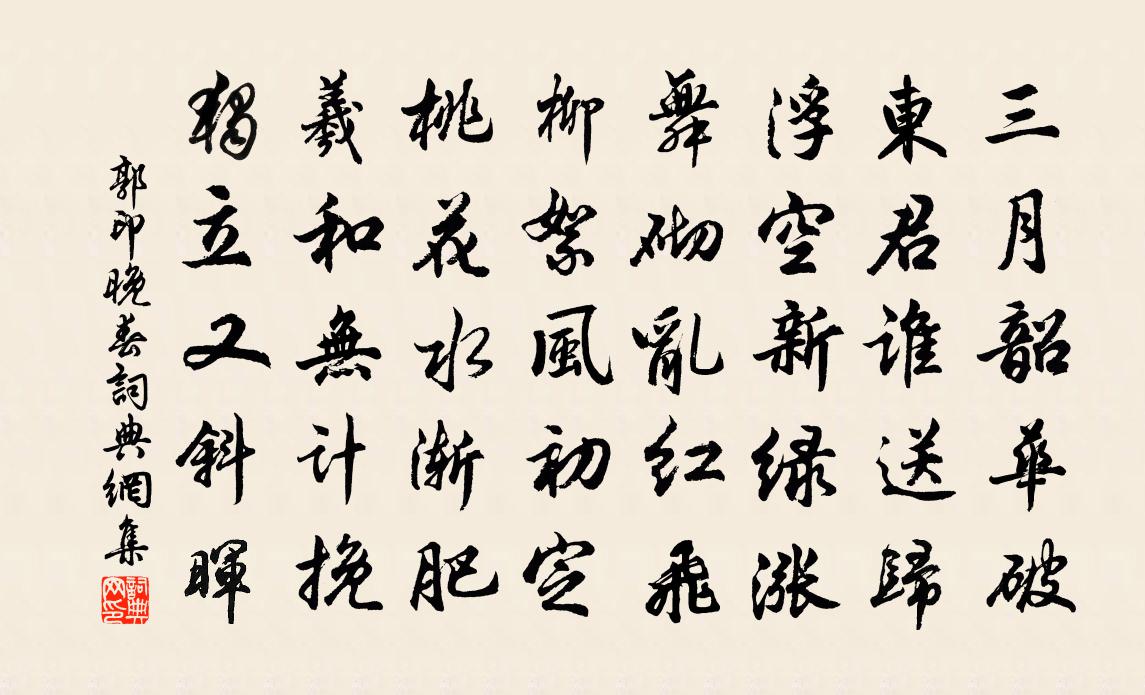 三月韶華破
東君誰送歸
浮空新緑漲
舞砌亂紅飛
柳絮風初定
桃花水漸肥
羲和無計挽
獨立又斜暉
郭印晚春詞典網集
詞典網印